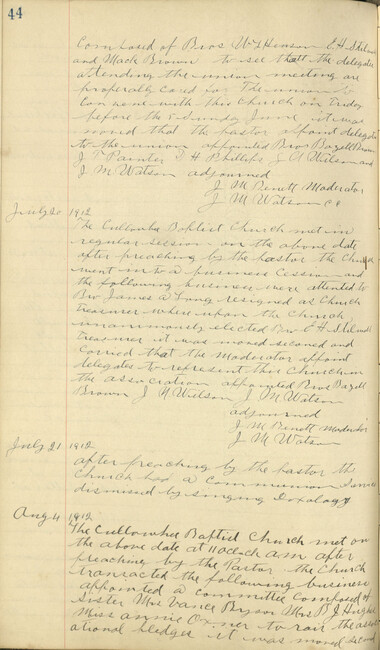 44
Composed of Bros Wm Henson E H Stilwell
and Mack Brown to see that the delegates
attending the union meeting are
properally cared for The union to
con vene with this church on Friday
before the Sunday June it was
moved that the pastor appoint delegates
to the union appointed Bros Bazell Brown
J T Painter T H Phillips J N Wilson and
J M Watson adjourned
J M Benett Moderator
J M Watson C C
July 20 1912
The Cullowhee Baptist Church met in
regular session on the above date
after preaching by the pastor the Church
went in to a business Cession and
the following business were attended to
Bro James A Long resigned as Church
treasurer where upon the Church
unanimously elected Bro E H Stilwell
treasurer it was moved seconed and
carried that the Moderator appoint
delegates to represent this Church in
the association appointed Bros Bazell
Brown J N Wilson J M Watson
adjourned
J M Benett Moderator
J M Watson
July 21 1912
after preaching by the Pastor the
Church had a Communion Service
dismised by singing Doxology
Aug 4 1912
The Cullowhee Baptist Church met on
the above date at 11 oclock A M after
preaching by the Pastor the Church
transacted the following business
appointed a committee composed of
Sister Mrs Vance Bryson Mrs B J
Miss Annie to rais the associ
ational pledges it was moved second